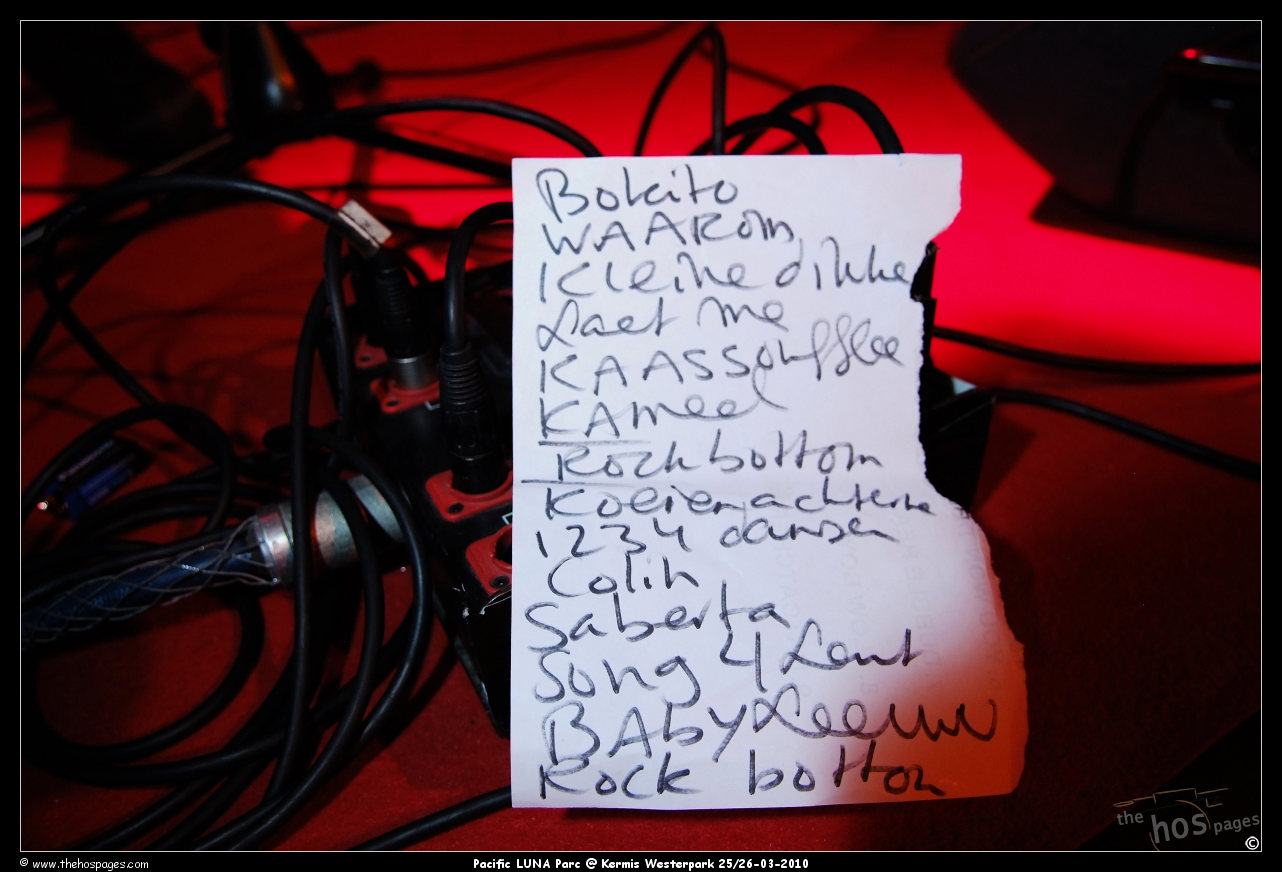 Bokito
WAAROM
Kleine dikke
Laet me
KAASSouffflee
KAmeel
Rockbottom
Koeienachterne
1234 dansen
Colin
Saberta
Song 4 Lent
BAby Leeuw
Rock bottom
the hos pages
©
© www.thehospages.com
Pacific LUNA Parc @ Kermis Westerpark 25/26-03-2010